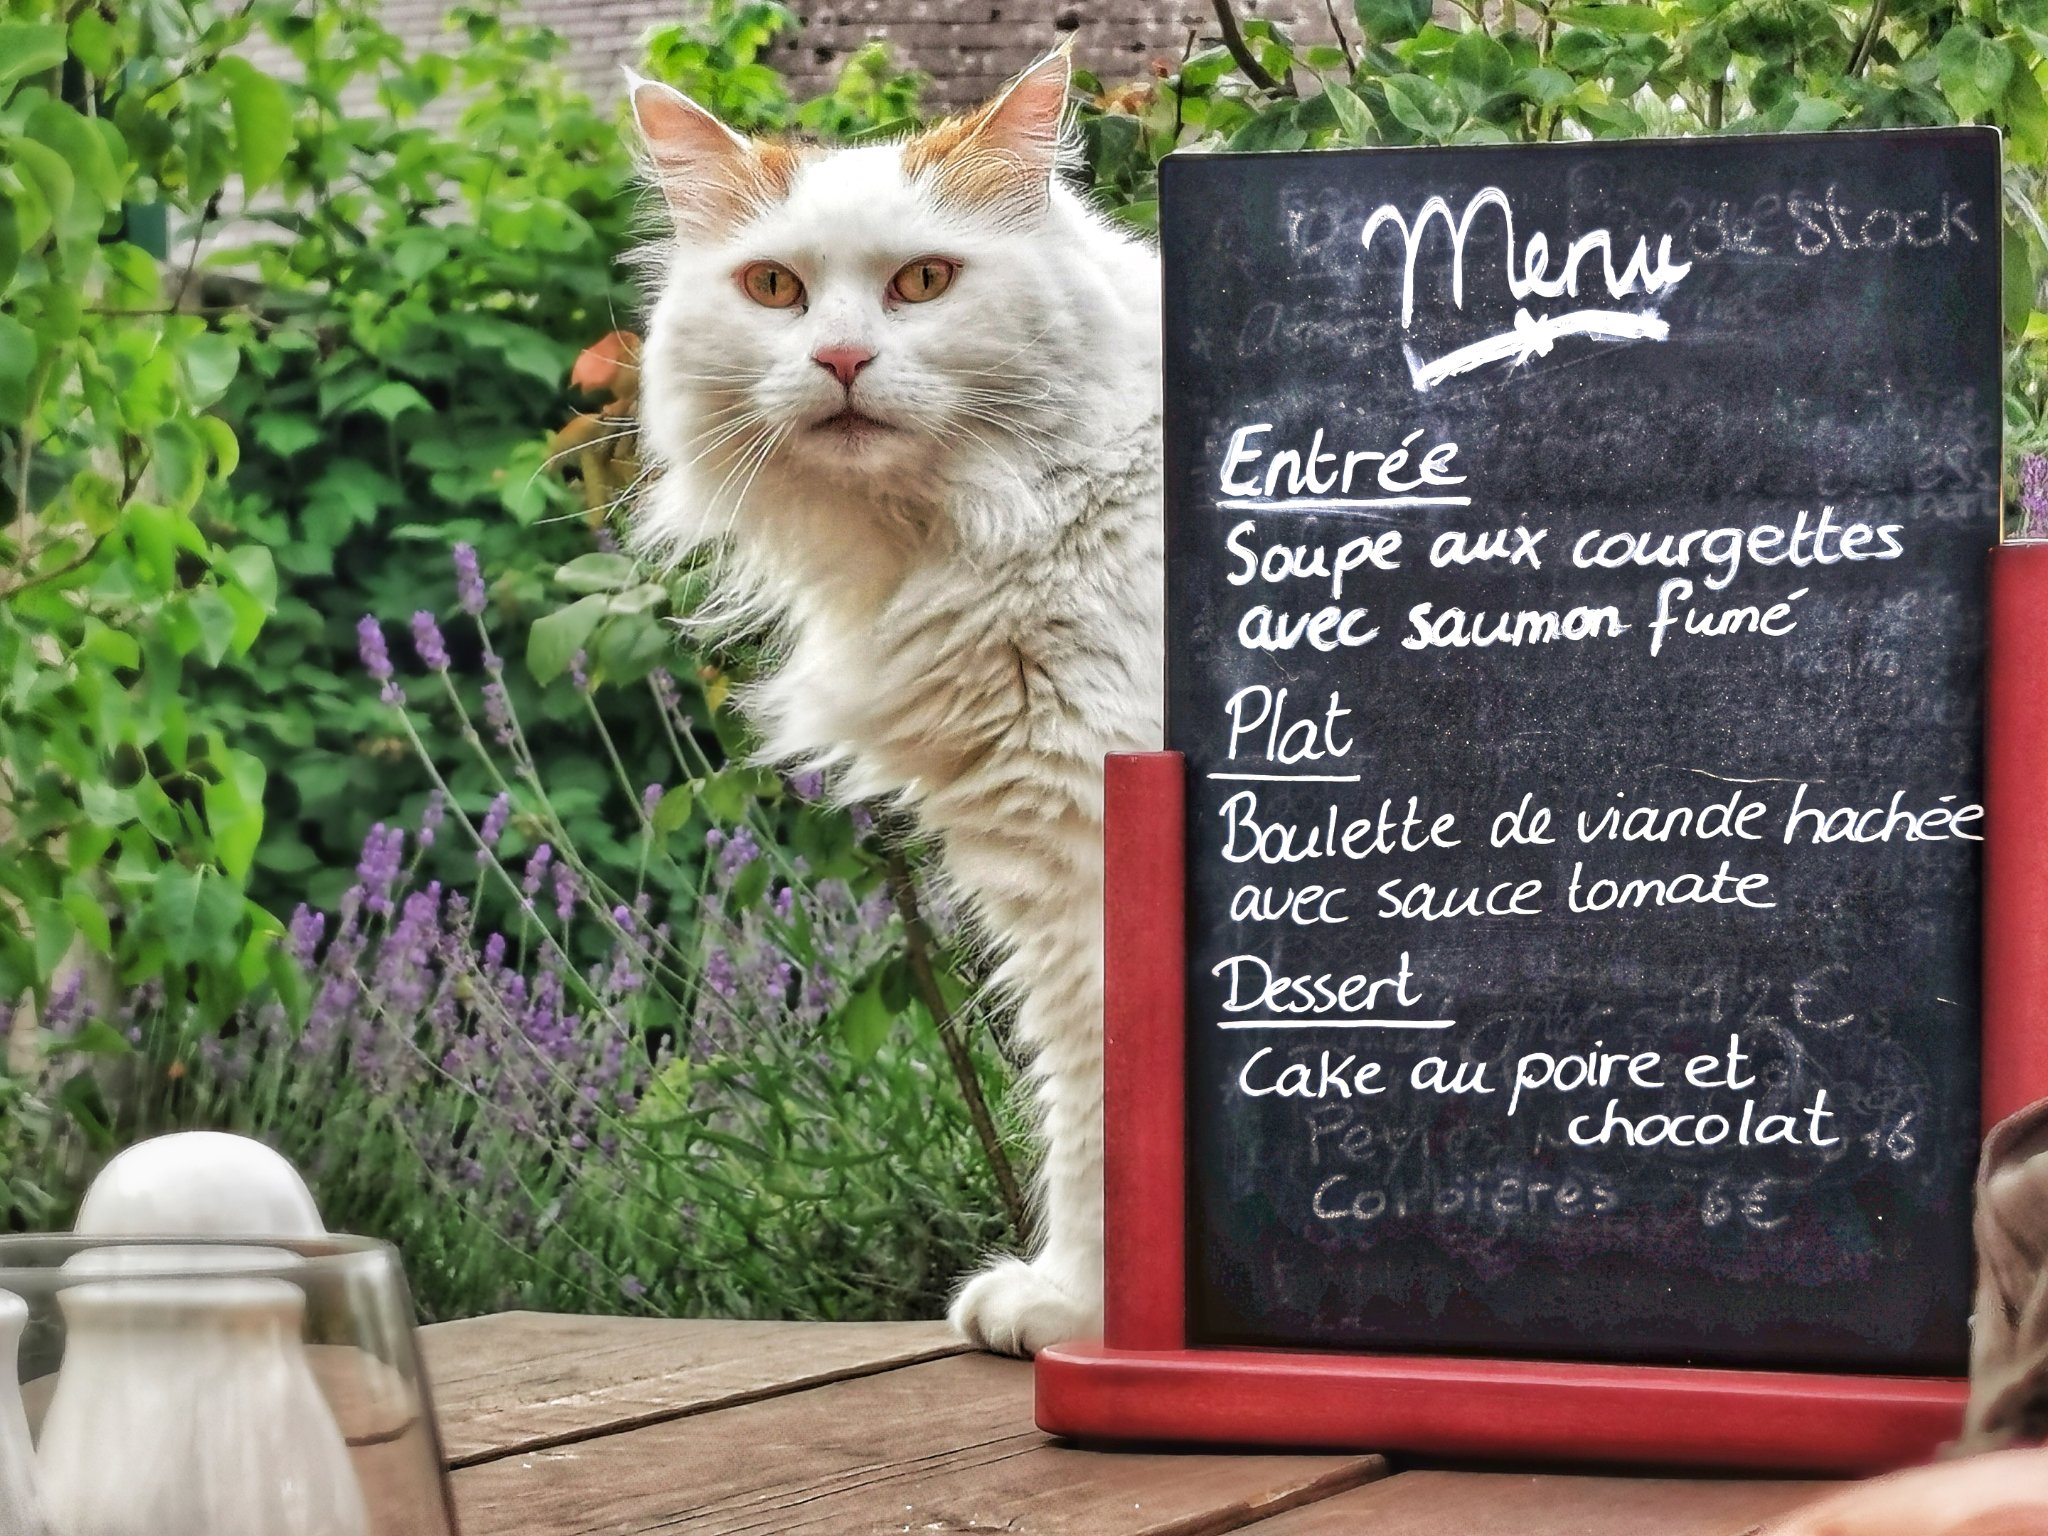 Menu
de Stock
Entrée
Soupe aux courgettes
avec saumon fumé
Plat
Boulette de viande hachée
avec sauce tomate
Dessert
12€
Cake au poire et
chocolat
16
Corbières 6€